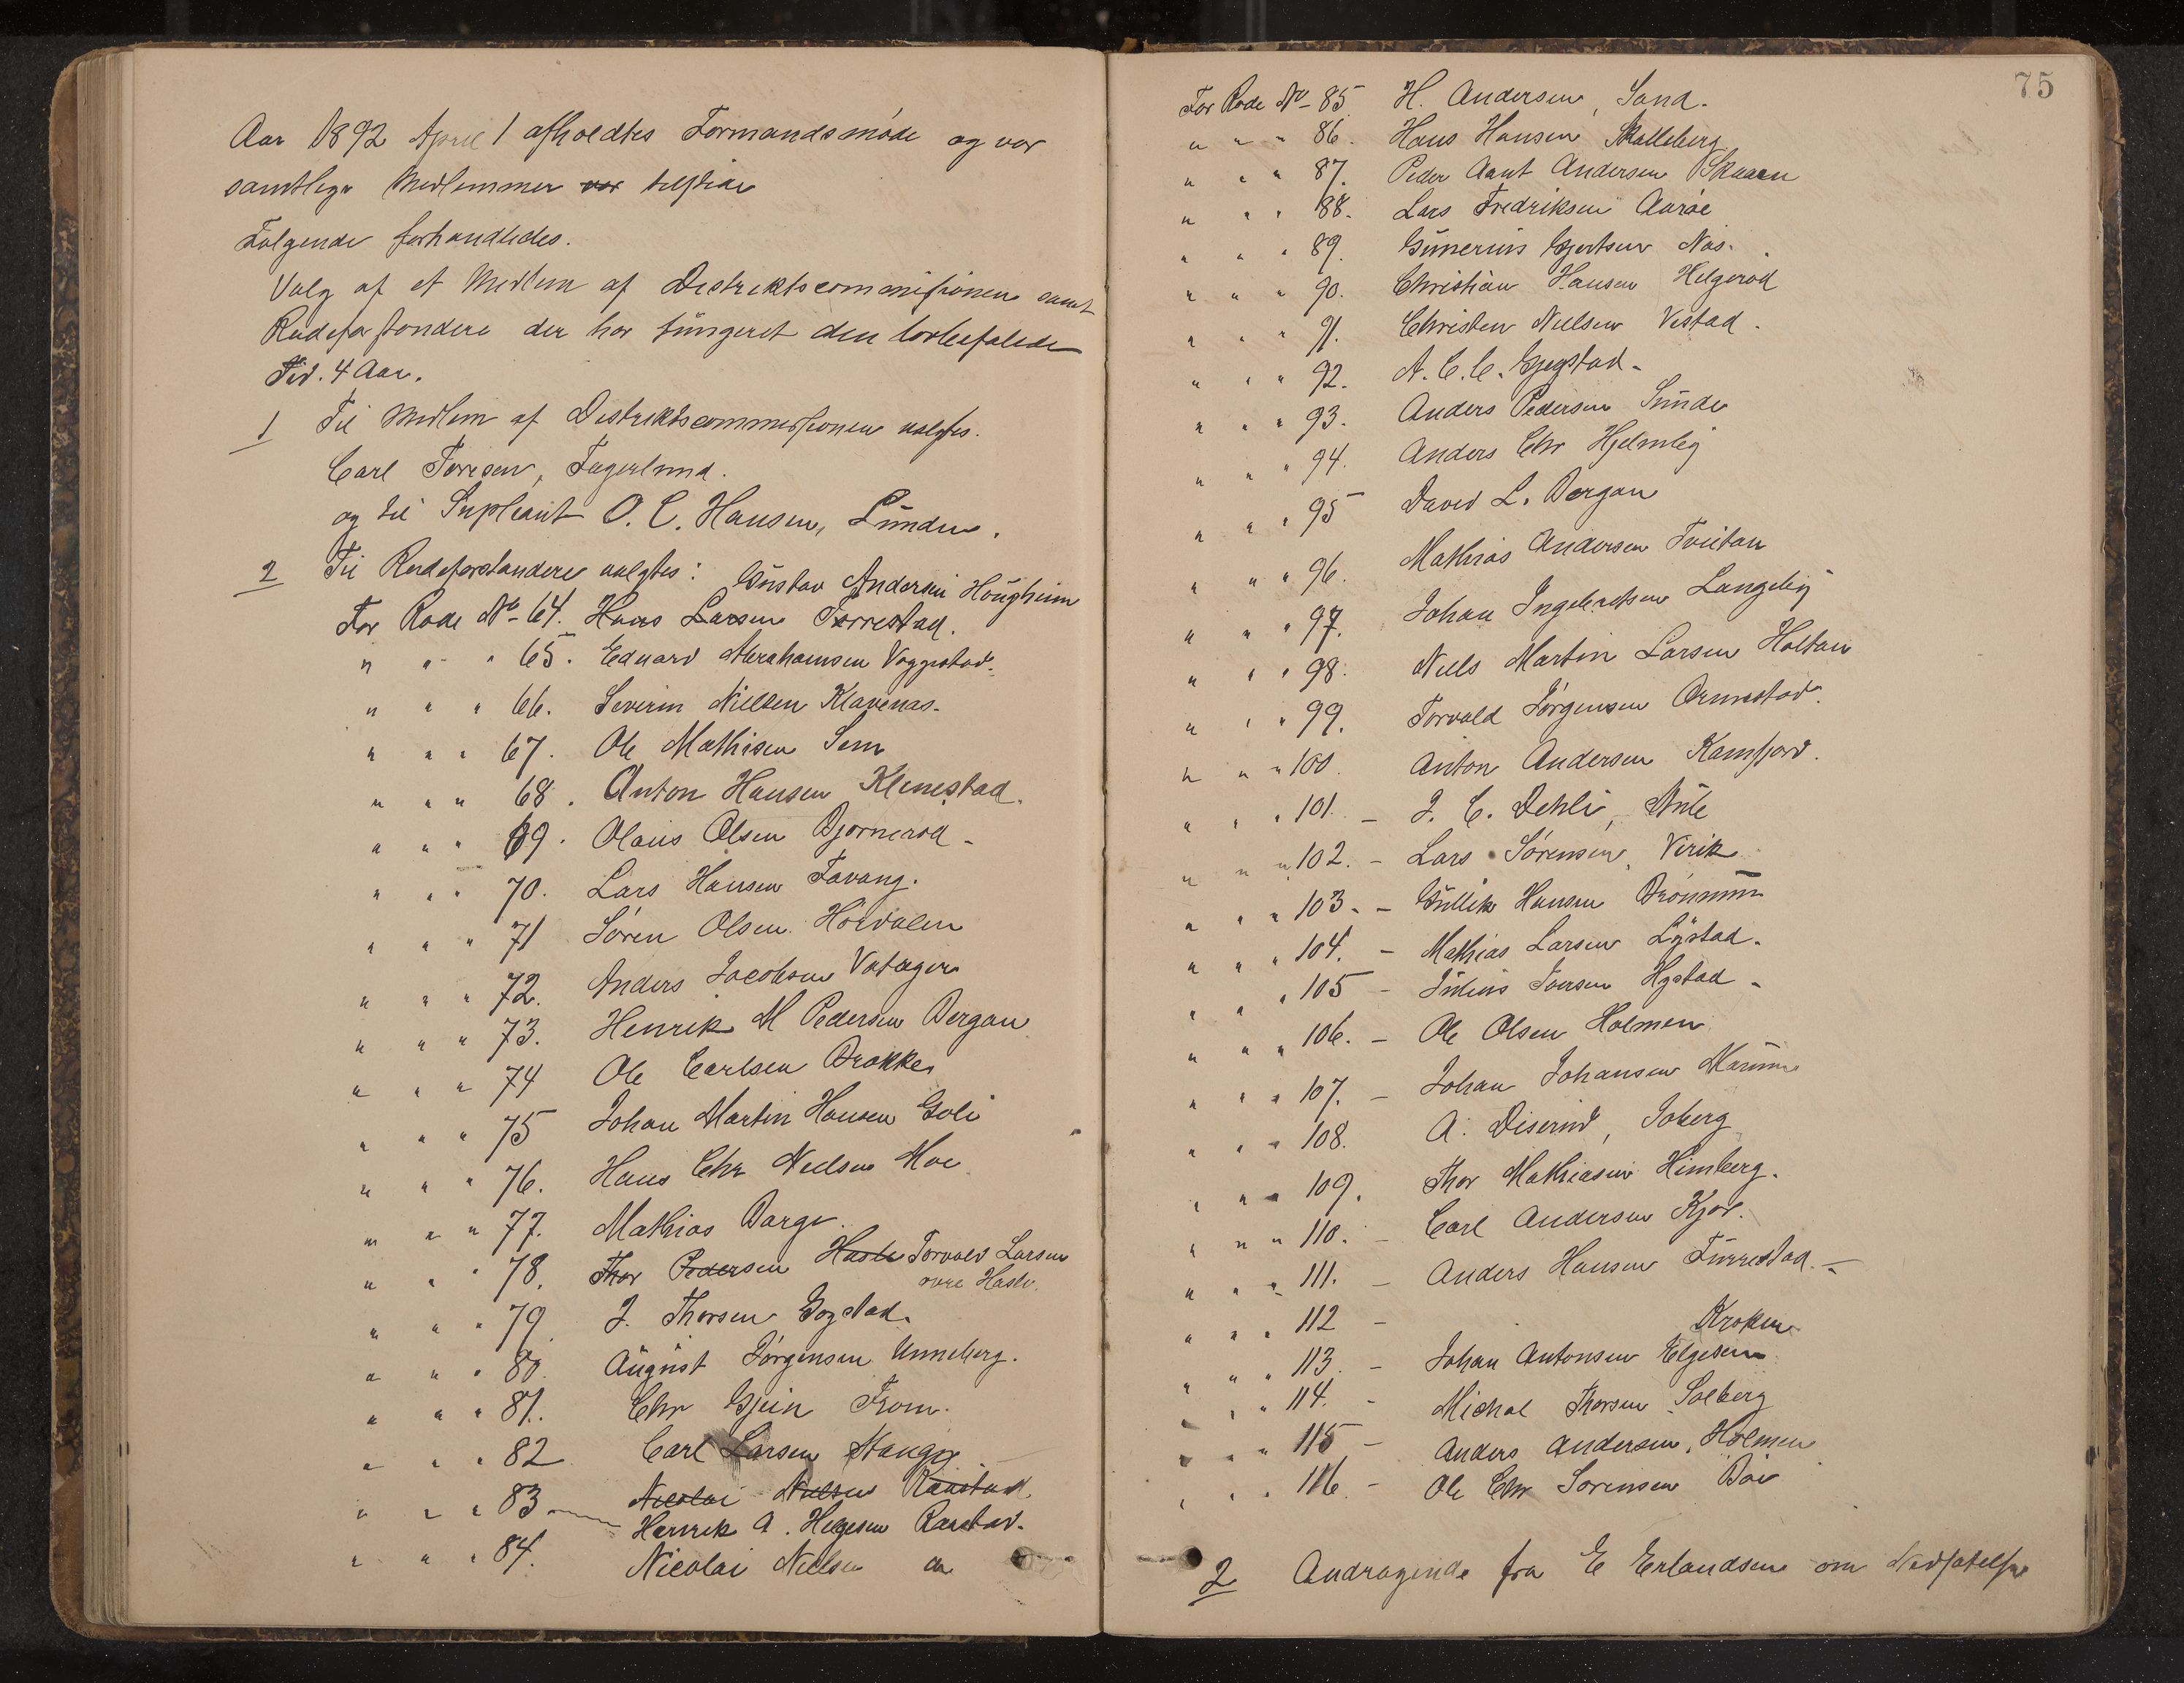 Aar 1892 April 1 afholdtes Formandsmøde og var
samtlige Medlemmer var tilstede
Følgende forhandledes.
Valg af et Medlem af Distriktscommisionen samt
Rodeforstandere der har fungeret den lovbefalede
Tid. 4 Aar.
1 Til Medlem af Distriktscommissionen valgtes.
Carl Torresen, Fagerlund.
og til Supleant O. C. Hansen, Lunden.
2 Til Rodeforstandere valgtes: Gustav Andersen Hougheim
For Rode No 64. Hans Larsen Torrestad.
" " " 65. Eduard Abrahamsen Vaggestad.
" " " 66. Severin Nilsen Klavenas.
" " " 67. Ole Mathisen Sem
" " " 68. Anton Hansen Klinestad.
" " " 69. Olaus Olsen Bjornerød
" " " 70. Lars Hansen Tavang.
" " " 71 Søren Olsen Hørdalen
" " " 72. Anders Jacobsen Valager
" " " 73. Henrik M Pedersen Bergan
" " " 74 Ole Carlsen Brekke
" " " 75 Johan Martin Hansen Goli
" " " 76. Hans Chr Nielsen Moe
" " " 77. Mathias Barge.
" " " 78. Thor Pedersen Hasle Torvald Larsen
øvre Hasle.
" " " 79. J. Thorsen Gogstad.
" " " 80. August Jørgensen Unneberg.
" " " 81. Chr Gjein From.
" " " 82 Carl Larsen Haugen
" " " 83 Nicolai Nielsen Raastad.
Henrik A. Helgesen Raastad.
" " " 84. Nicolai Nielsen
75
For Rode No 85 H. Andersen, Sand.
" " " 86. Hans Hansen Skalleberg
" " " 87. Peder Aant Andersen Skaaen
" " " 88. Lars Fredriksen Aarøe
" " " 89. Gunerius Gjertsen Nas.
" " " 90. Christian Hansen Helgerød
" " " 91. Christen Nielsen Vestad.
" " " 92. A. C. C. Gjegstad.
" " " 93. Anders Pedersen Sunde
" " " 94. Anders Chr Hjelmleg
" " " 95 David L. Bergan
" " " 96. Mathias Andersen Tveitan
" " " 97. Johan Ingebretsen Langeby
" " " 98. Niels Martin Larsen Holtan
" " " 99. Torvald Jørgensen Ormestad.
" " " 100. Anton Andersen Kamfjord.
" " " 101. – J. C. Dehli, Aule
" " " 102. – Lars Sørensen, Virik
" " " 103. – Gullik Hansen Brønnum
" " " 104. – Mathias Larsen Lystad.
" " " 105 – Julius Iversen Hystad.
" " " 106. – Ole Olsen Holmen
" " " 107. – Johan Johansen Marum
" " " 108. A. Diserud, Soberg
" " " 109. Thor Mathiasen Himberg.
" " " 110. – Carl Andersen Kjær.
" " " 111. – Anders Hansen Furrestad. –
" " " 112 – Kroken
" " " 113. – Johan Antonsen Elgesem
" " " 114. – Michal Thorsen Solberg
" " " 115 – Anders Andersen, Holmen
" " " 116. – Ole Chr Sørensen Bøe
2 Andragende fra E Erlandsen om Nedsatelse